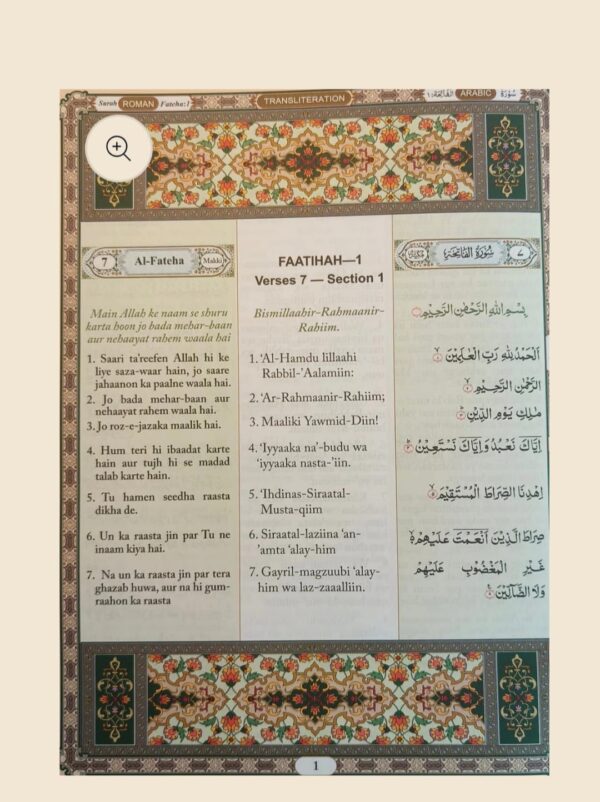 Surah ROMAN Fateha:1
TRANSLITERATION
الفاتحة:١ ARABIC سُوْرَةٌ
7 Al-Fateha Makki
Main Allah ke naam se shuru
karta hoon jo bada mehar-baan
aur nehaayat rahem waala hai
1. Saari ta'reefen Allah hi ke
liye saza-waar hain, jo saare
jahaanon ka paalne waala hai.
2. Jo bada mehar-baan aur
nehaayat rahem waala hai.
3. Jo roz-e-jazaka maalik hai.
4. Hum teri hi ibaadat karte
hain aur tujh hi se madad
talab karte hain.
5. Tu hamen seedha raasta
dikha de.
6. Un ka raasta jin par Tu ne
inaam kiya hai.
7. Na un ka raasta jin par tera
ghazab huwa, aur na hi gum-
raahon ka raasta
FAATIHAH—1
Verses 7 — Section 1
Bismillaahir-Rahmaanir-
Rahiim.
1. ‘Al-Hamdu lillaahi
Rabbil-’Aalamiin:
2. ‘Ar-Rahmaanir-Rahiim;
3. Maaliki Yawmid-Diin!
4. ‘Iyyaaka na’-budu wa
‘iyyaaka nasta-’iin.
5. ‘Ihdinas-Siraatal-
Musta-qiim
6. Siraatal-laziina ‘an-
’amta ‘alay-him
7. Gayril-magzuubi ‘alay-
him wa laz-zaaalliin.
٧ سُوْرَةُ الْفَاتِحَةِ مَكِّيَّةٌ
بِسْمِ اللهِ الرَّحْمٰنِ الرَّحِيْمِ
اَلْحَمْدُ لِلّٰهِ رَبِّ الْعٰلَمِيْنَ ۙ
الرَّحْمٰنِ الرَّحِيْمِ ۙ
مٰلِكِ يَوْمِ الدِّيْنِ ۙ
اِيَّاكَ نَعْبُدُ وَاِيَّاكَ نَسْتَعِيْنُ ۙ
اِهْدِنَا الصِّرَاطَ الْمُسْتَقِيْمَ ۙ
صِرَاطَ الَّذِيْنَ اَنْعَمْتَ عَلَيْهِمْ ۙ
غَيْرِ الْمَغْضُوْبِ عَلَيْهِمْ
وَلَا الضَّآلِّيْنَ
1